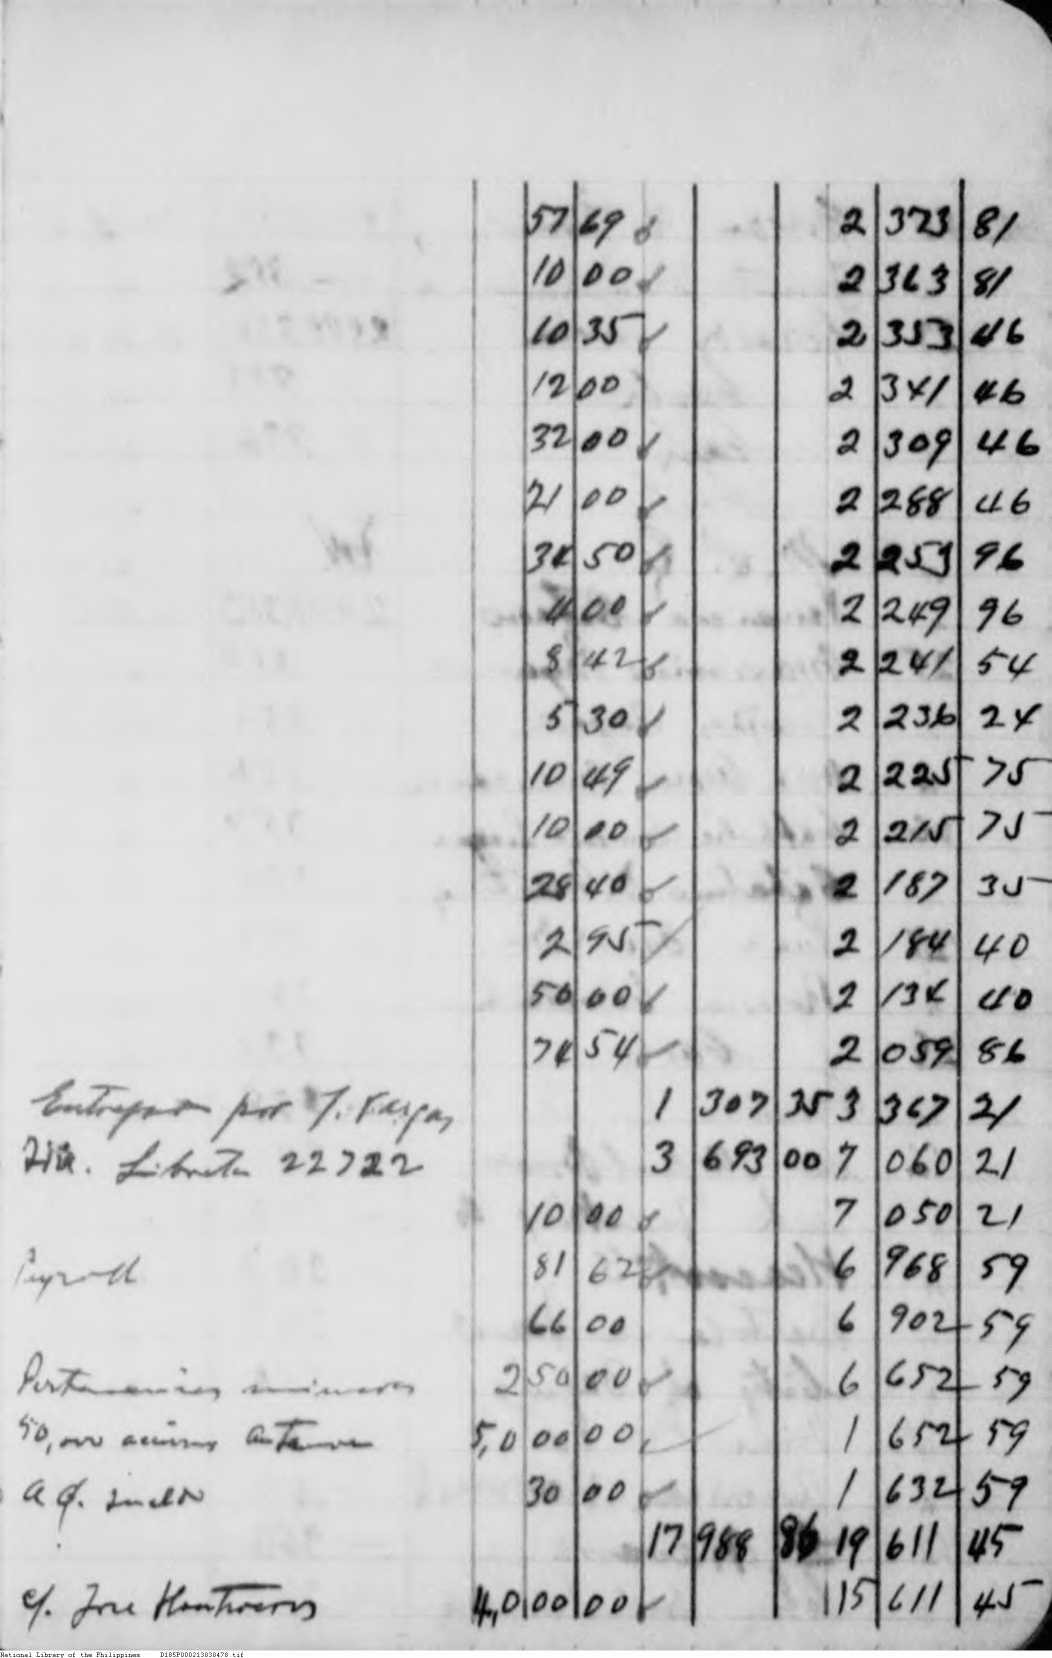 57 69 2 373 81
10 00 2 363 81
10 35 2 353 46
12 00 2 341 46
32 00 2 309 46
21 00 2 288 46
34 50 2 253 96
4 00 2 249 96
8 42 2 241 54
5 30 2 236 24
10 49 2 225 75
10 00 2 215 75
28 40 2 187 35
2 95 2 184 40
50 00 2 134 40
74 54 2 059 86
por J. Vargas 1 307 35 3 367 21
Libreta 22722 3 693 00 7 060 21
10 00 7 050 21
Payroll 81 62 6 968 59
66 00 6 902 59
Pertenencias mineras 250 00 6 652 59
50,000 acciones Antamok 5,000 00 1 652 59
a/c. sueldo 30 00 1 632 59
17 988 86 19 611 45
c/. Jose 4,000 00 15 611 45
National Library of the Philippines D185P000213030478.tif